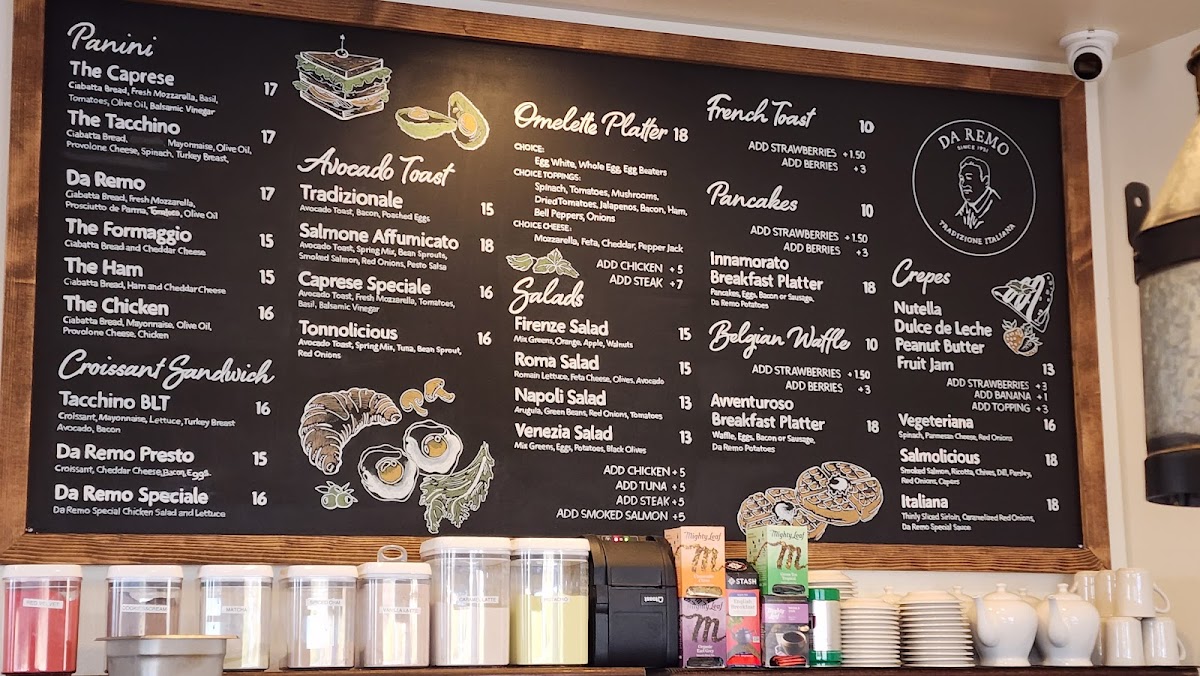 Panini
The Caprese 17
Ciabatta Bread, Fresh Mozzarella, Basil,
Tomatoes, Olive Oil, Balsamic Vinegar
The Tacchino 17
Ciabatta Bread, Mayonnaise, Olive Oil,
Provolone Cheese, Spinach, Turkey Breast,
Da Remo 17
Ciabatta Bread, Fresh Mozzarella,
Prosciutto de Parma, Tomatoes, Olive Oil
The Formaggio 15
Ciabatta Bread and Cheddar Cheese
The Ham 15
Ciabatta Bread, Ham and Cheddar Cheese
The Chicken 16
Ciabatta Bread, Mayonnaise, Olive Oil,
Provolone Cheese, Chicken
Croissant Sandwich
Tacchino BLT 16
Croissant, Mayonnaise, Lettuce, Turkey Breast
Avocado, Bacon
Da Remo Presto 15
Croissant, Cheddar Cheese, Bacon, Eggs
Da Remo Speciale 16
Da Remo Special Chicken Salad and Lettuce
Avocado Toast
Tradizionale 15
Avocado Toast, Bacon, Poached Eggs
Salmone Affumicato 18
Avocado Toast, Spring Mix, Bean Sprouts,
Smoked Salmon, Red Onions, Pesto Salsa
Caprese Speciale 16
Avocado Toast, Fresh Mozzarella, Tomatoes,
Basil, Balsamic Vinegar
Tonnolicious 16
Avocado Toast, Spring Mix, Tuna, Bean Sprout,
Red Onions
Omelette Platter 18
CHOICE:
Egg White, Whole Egg, Egg Beaters
CHOICE TOPPINGS:
Spinach, Tomatoes, Mushrooms,
Dried Tomatoes, Jalapenos, Bacon, Ham,
Bell Peppers, Onions
CHOICE CHEESE:
Mozzarella, Feta, Cheddar, Pepper Jack
ADD CHICKEN +5
ADD STEAK +7
Salads
Firenze Salad 15
Mix Greens, Orange, Apple, Walnuts
Roma Salad 15
Romain Lettuce, Feta Cheese, Olives, Avocado
Napoli Salad 13
Arugula, Green Beans, Red Onions, Tomatoes
Venezia Salad 13
Mix Greens, Eggs, Potatoes, Black Olives
ADD CHICKEN +5
ADD TUNA +5
ADD STEAK +5
ADD SMOKED SALMON +5
French Toast 10
ADD STRAWBERRIES +1.50
ADD BERRIES +3
Pancakes 10
ADD STRAWBERRIES +1.50
ADD BERRIES +3
Innamorato
Breakfast Platter 18
Pancakes, Eggs, Bacon or Sausage,
Da Remo Potatoes
Belgian Waffle 10
ADD STRAWBERRIES +1.50
ADD BERRIES +3
Avventuroso
Breakfast Platter 18
Waffle, Eggs, Bacon or Sausage,
Da Remo Potatoes
DA REMO
SINCE 1951
TRADIZIONE ITALIANA
Crepes
Nutella
Dulce de Leche
Peanut Butter
Fruit Jam 13
ADD STRAWBERRIES +3
ADD BANANA +1
ADD TOPPING +3
Vegeteriana 16
Spinach, Parmesan Cheese, Red Onions
Salmolicious 18
Smoked Salmon, Ricotta, Chives, Dill, Parsley,
Red Onions, Capers
Italiana 18
Thinly Sliced Sirloin, Caramelized Red Onions,
Da Remo Special Sauce
MATCHA
Mighty Leaf
Mighty Leaf
STASH